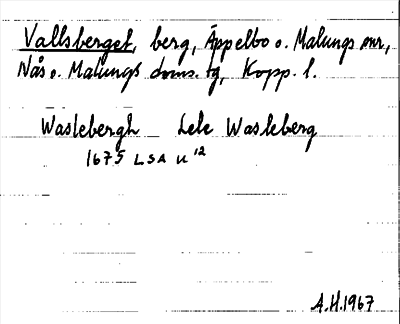 Vallsberget, berg, Äppelbo o. Malungs snr,
Nås o. Malungs doms. tg, Kopp. l.
Waslebergh Lele Wasleberg
1675 LSA U 12
A.H. 1967